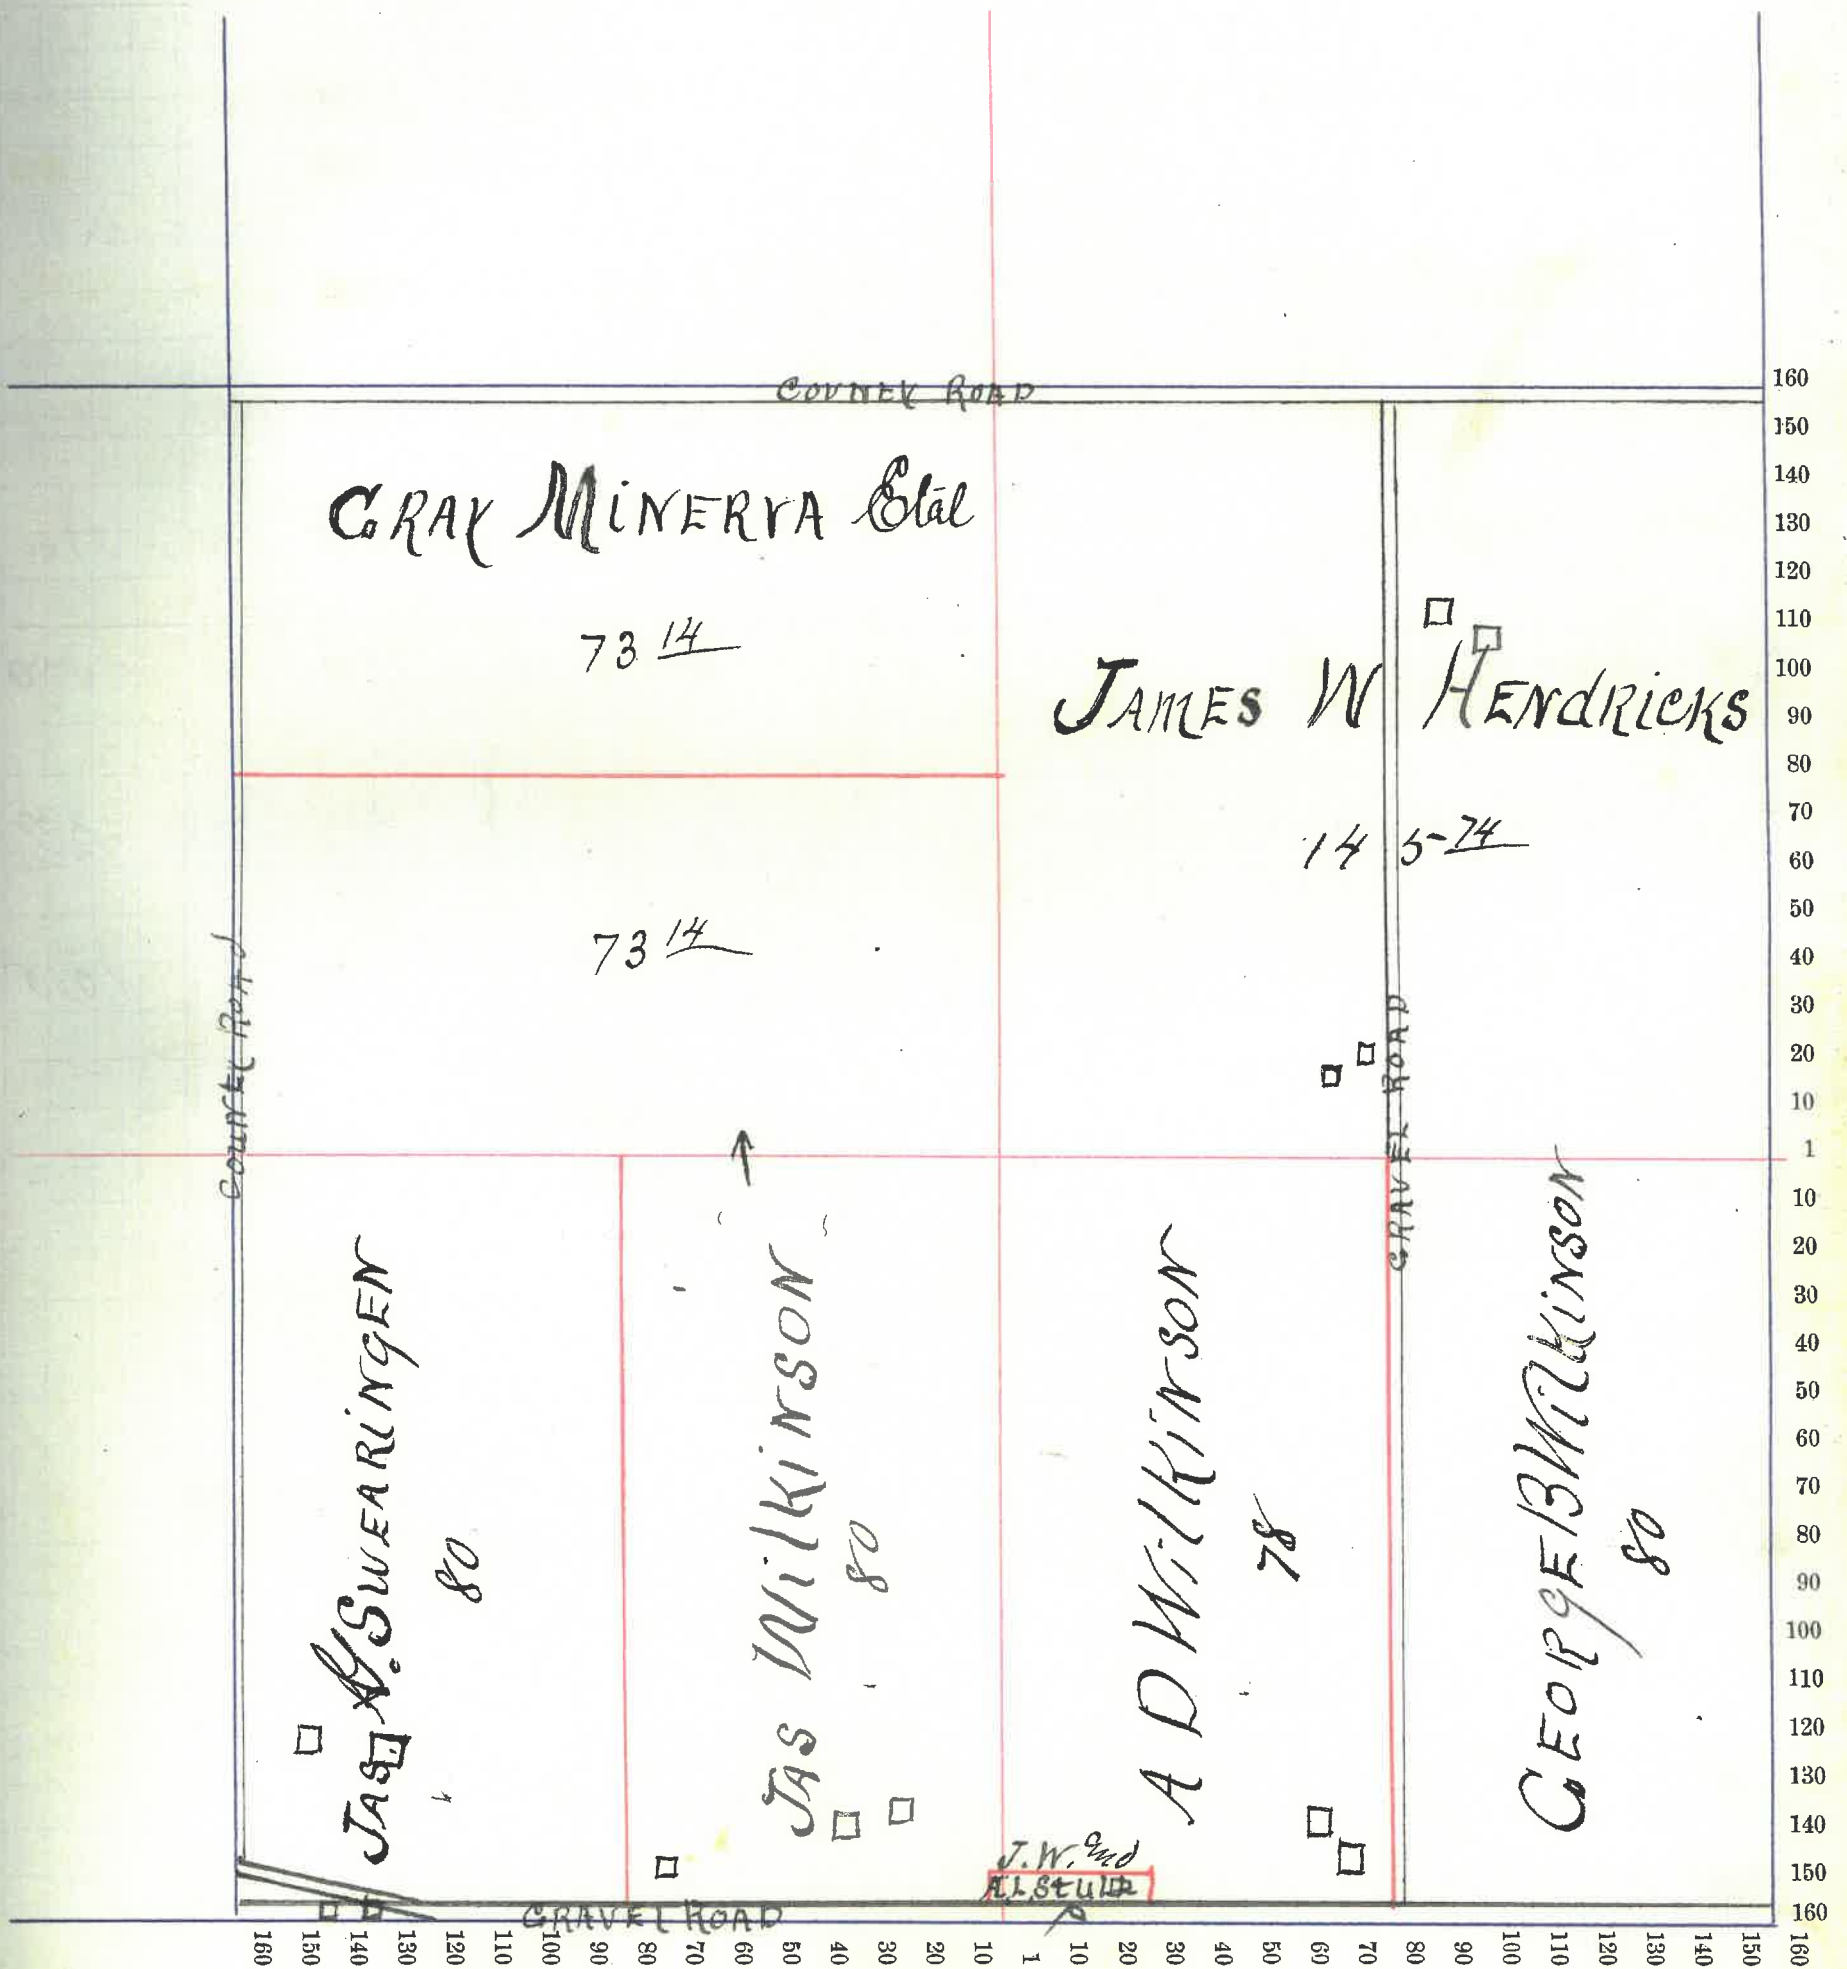 COUNTY ROAD
GRAY MINERVA Etal
73 14
JAMES W HENDRICKS
14 5 74
73 14
COUNTY ROAD
GRAVEL ROAD
JAS SWEARINGEN
80
JAS WILKINSON
80
A D WILKINSON
78
GEORGE B WILKINSON
80
J.W. and
A.L. STULTZ
GRAVEL ROAD
160
150
140
130
120
110
100
90
80
70
60
50
40
30
20
10
1
10
20
30
40
50
60
70
80
90
100
110
120
130
140
150
160
160 150 140 130 120 110 100 90 80 70 60 50 40 30 20 10 1 10 20 30 40 50 60 70 80 90 100 110 120 130 140 150 160